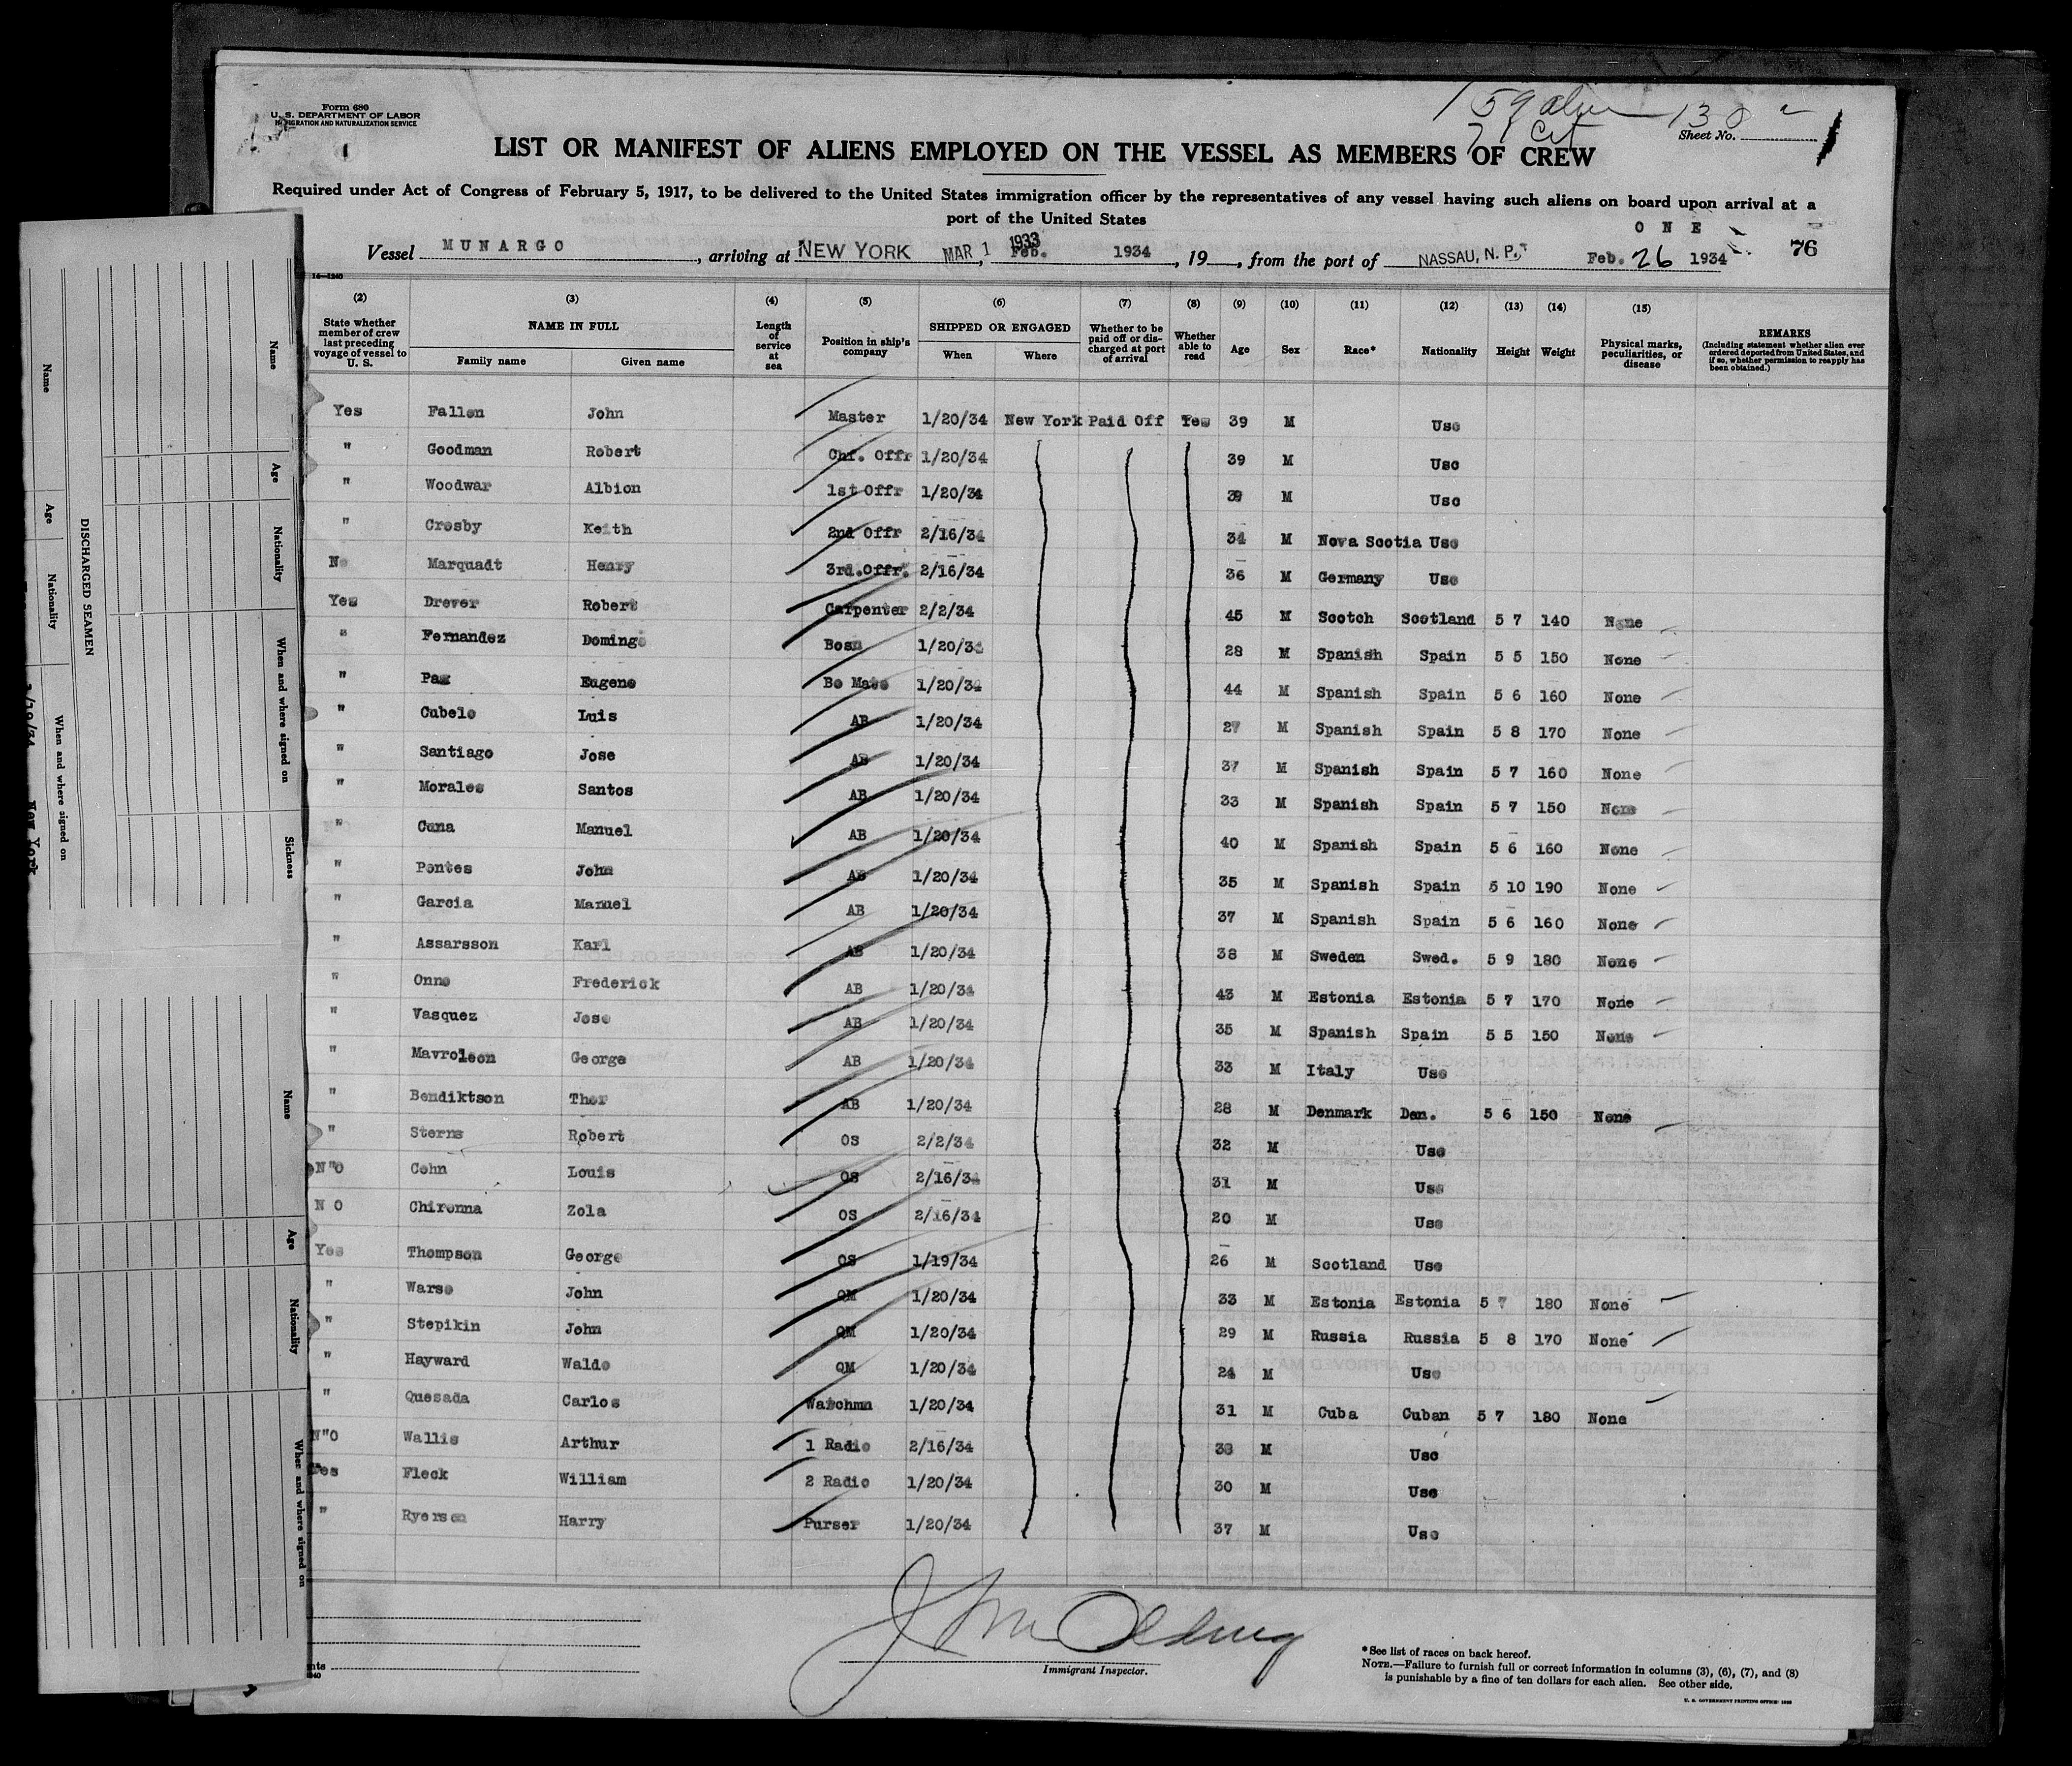 Form 680
U. S. DEPARTMENT OF LABOR
IMMIGRATION AND NATURALIZATION SERVICE
59 alien 138
79 Cit
Sheet No.
1
LIST OR MANIFEST OF ALIENS EMPLOYED ON THE VESSEL AS MEMBERS OF CREW
Required under Act of Congress of February 5, 1917, to be delivered to the United States immigration officer by the representatives of any vessel having such aliens on board upon arrival at a
port of the United States
ONE
Vessel MUNARGO, arriving at NEW YORK MAR 1 1933 Feb. 1934, 19, from the port of NASSAU, N. P. Feb. 26 1934 76
14-1240
(2) (3) (4) (5) (6) (7) (8) (9) (10) (11) (12) (13) (14) (15)
State whether member of crew last preceding voyage of vessel to U. S.
NAME IN FULL
Family name Given name
Length of service at sea
Position in ship's company
SHIPPED OR ENGAGED
When Where
Whether to be paid off or discharged at port of arrival
Whether able to read
Age Sex Race* Nationality Height Weight
Physical marks, peculiarities, or disease
REMARKS
(Including statement whether alien ever ordered deported from United States, and if so, whether permission to reapply has been obtained.)
Yes Fallon John Master 1/20/34 New York Paid Off Yes 39 M Usc
" Goodman Robert Chf. Offr 1/20/34 39 M Usc
" Woodwar Albion 1st Offr 1/20/34 39 M Usc
" Crosby Keith 2nd Offr 2/16/34 34 M Nova Scotia Usc
No Marquadt Henry 3rd.Offr. 2/16/34 36 M Germany Usc
Yes Drever Robert Carpenter 2/2/34 45 M Scotch Scotland 5 7 140 None
" Fernandez Domingo Bosn 1/20/34 28 M Spanish Spain 5 5 150 None
" Paz Eugene Bo Mate 1/20/34 44 M Spanish Spain 5 6 160 None
" Cubelo Luis AB 1/20/34 27 M Spanish Spain 5 8 170 None
" Santiago Jose AB 1/20/34 37 M Spanish Spain 5 7 160 None
" Morales Santos AB 1/20/34 33 M Spanish Spain 5 7 150 None
" Cuna Manuel AB 1/20/34 40 M Spanish Spain 5 6 160 None
" Pontes John AB 1/20/34 35 M Spanish Spain 5 10 190 None
" Garcia Manuel AB 1/20/34 37 M Spanish Spain 5 6 160 None
" Assarsson Karl AB 1/20/34 38 M Sweden Swed. 5 9 180 None
" Onno Frederick AB 1/20/34 43 M Estonia Estonia 5 7 170 None
" Vasquez Jose AB 1/20/34 35 M Spanish Spain 5 5 150 None
" Mavroleon George AB 1/20/34 33 M Italy Usc
" Bendiktson Thor AB 1/20/34 28 M Denmark Den. 5 6 150 None
" Sterns Robert OS 2/2/34 32 M Usc
N"O Cohn Louis OS 2/16/34 31 M Usc
N O Chironna Zola OS 2/16/34 20 M Usc
Yes Thompson George OS 1/19/34 26 M Scotland Usc
" Warso John QM 1/20/34 33 M Estonia Estonia 5 7 180 None
" Stepikin John QM 1/20/34 29 M Russia Russia 5 8 170 None
" Hayward Waldo QM 1/20/34 24 M Usc
" Quesada Carlos Watchmn 1/20/34 31 M Cuba Cuban 5 7 180 None
N"O Wallis Arthur 1 Radio 2/16/34 38 M Usc
Yes Fleck William 2 Radio 1/20/34 30 M Usc
" Ryerson Harry Purser 1/20/34 37 M Usc
Immigrant Inspector.
*See list of races on back hereof.
NOTE.—Failure to furnish full or correct information in columns (3), (6), (7), and (8)
is punishable by a fine of ten dollars for each alien. See other side.
U. S. GOVERNMENT PRINTING OFFICE: 1933
Name Age Nationality When and where signed on Sickness
DISCHARGED SEAMEN
Name Age Nationality When and where signed on
1/19/34 New York
Name Age Nationality When and where signed on